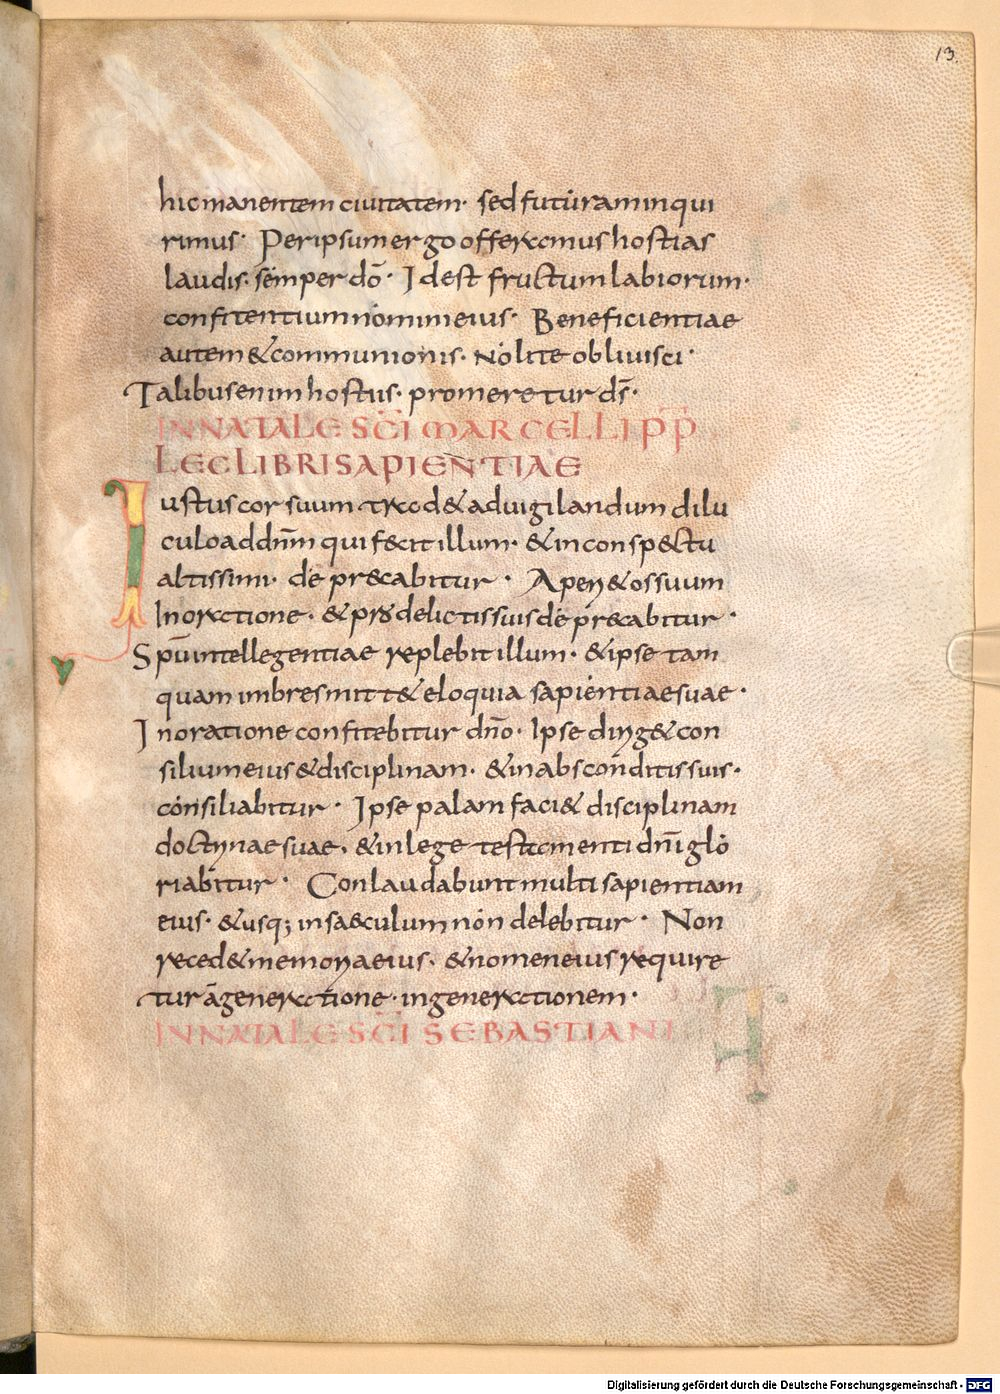 13.
hic manentem ciuitatem· sed futuram inqui
rimus· Per ipsum ergo offeramus hostias
laudis· semper dō· Id est fructum labiorum·
confitentium nomini eius· Beneficientiae
autem & communionis· Nolite obliuisci·
Talibus enim hostiis· promeretur dś·
IN NATALE SCĪ MARCELLI PP
LEC LIBRI SAPIENTIAE
Iustus cor suum trad& ad uigilandum dilu
culo ad dnm̄ qui fecit illum· & in conspectu
altissimi· deprecabitur· Aperi& os suum
In oratione· & pro delictis suis deprecabitur·
Spū intellegentiae replebit illum· & ipse tam
quam imbres mitt& eloquia sapientiae suae·
In oratione confitebitur dño· Ipse dirig& con
silium eius & disciplinam· & in absconditis suis·
consiliabitur· Ipse palam faci& disciplinam
doctrinae suae· & in lege testamenti dñi glo
riabitur· Conlaudabunt multi sapientiam
eius· & usq; in saeculum non delebitur· Non
reced& memoria eius· & nomen eius require
tur a generatione· in generationem·
IN NATALE SCĪ SEBASTIANI
Digitalisierung gefördert durch die Deutsche Forschungsgemeinschaft - DFG